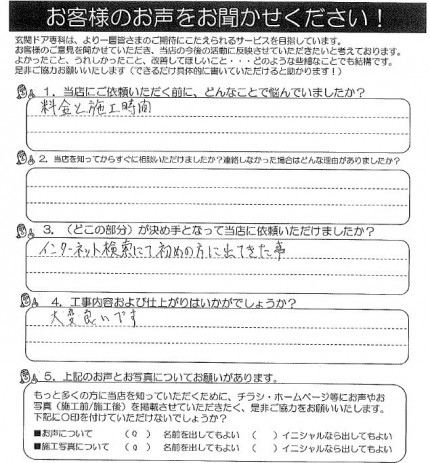 お客様のお声をお聞かせください！
玄関ドア専科は、より一層皆さまのご期待にこたえられるサービスを目指しています。
お客様のご意見を聞かせていただき、当店の今後の活動に反映させていただきたいと考えております。
よかったこと、うれしかったこと、改善してほしいこと・・・どのような些細なことでも結構です。
是非ご協力お願いいたします（できるだけ具体的に書いていただけると助かります！）
Q 1．当店にご依頼いただく前に、どんなことで悩んでいましたか？
料金と施工時間
Q 2．当店を知ってからすぐに相談いただけましたか？連絡しなかった場合はどんな理由がありましたか？
Q 3．（どこの部分）が決め手となって当店に依頼いただけましたか？
インターネット検索にて初めの方に出てきた事
Q 4．工事内容および仕上がりはいかがでしょうか？
大変良いです
Q 5．上記のお声とお写真についてお願いがあります。
もっと多くの方に当店を知っていただくために、チラシ・ホームページ等にお声やお
写真（施工前/施工後）を掲載させていただきたく、是非ご協力をお願いいたします。
下記に〇印を付けていただけないでしょうか？
■お声について （〇） 名前を出してもよい （ ）イニシャルなら出してもよい
■施工写真について （〇） 名前を出してもよい （ ）イニシャルなら出してもよい